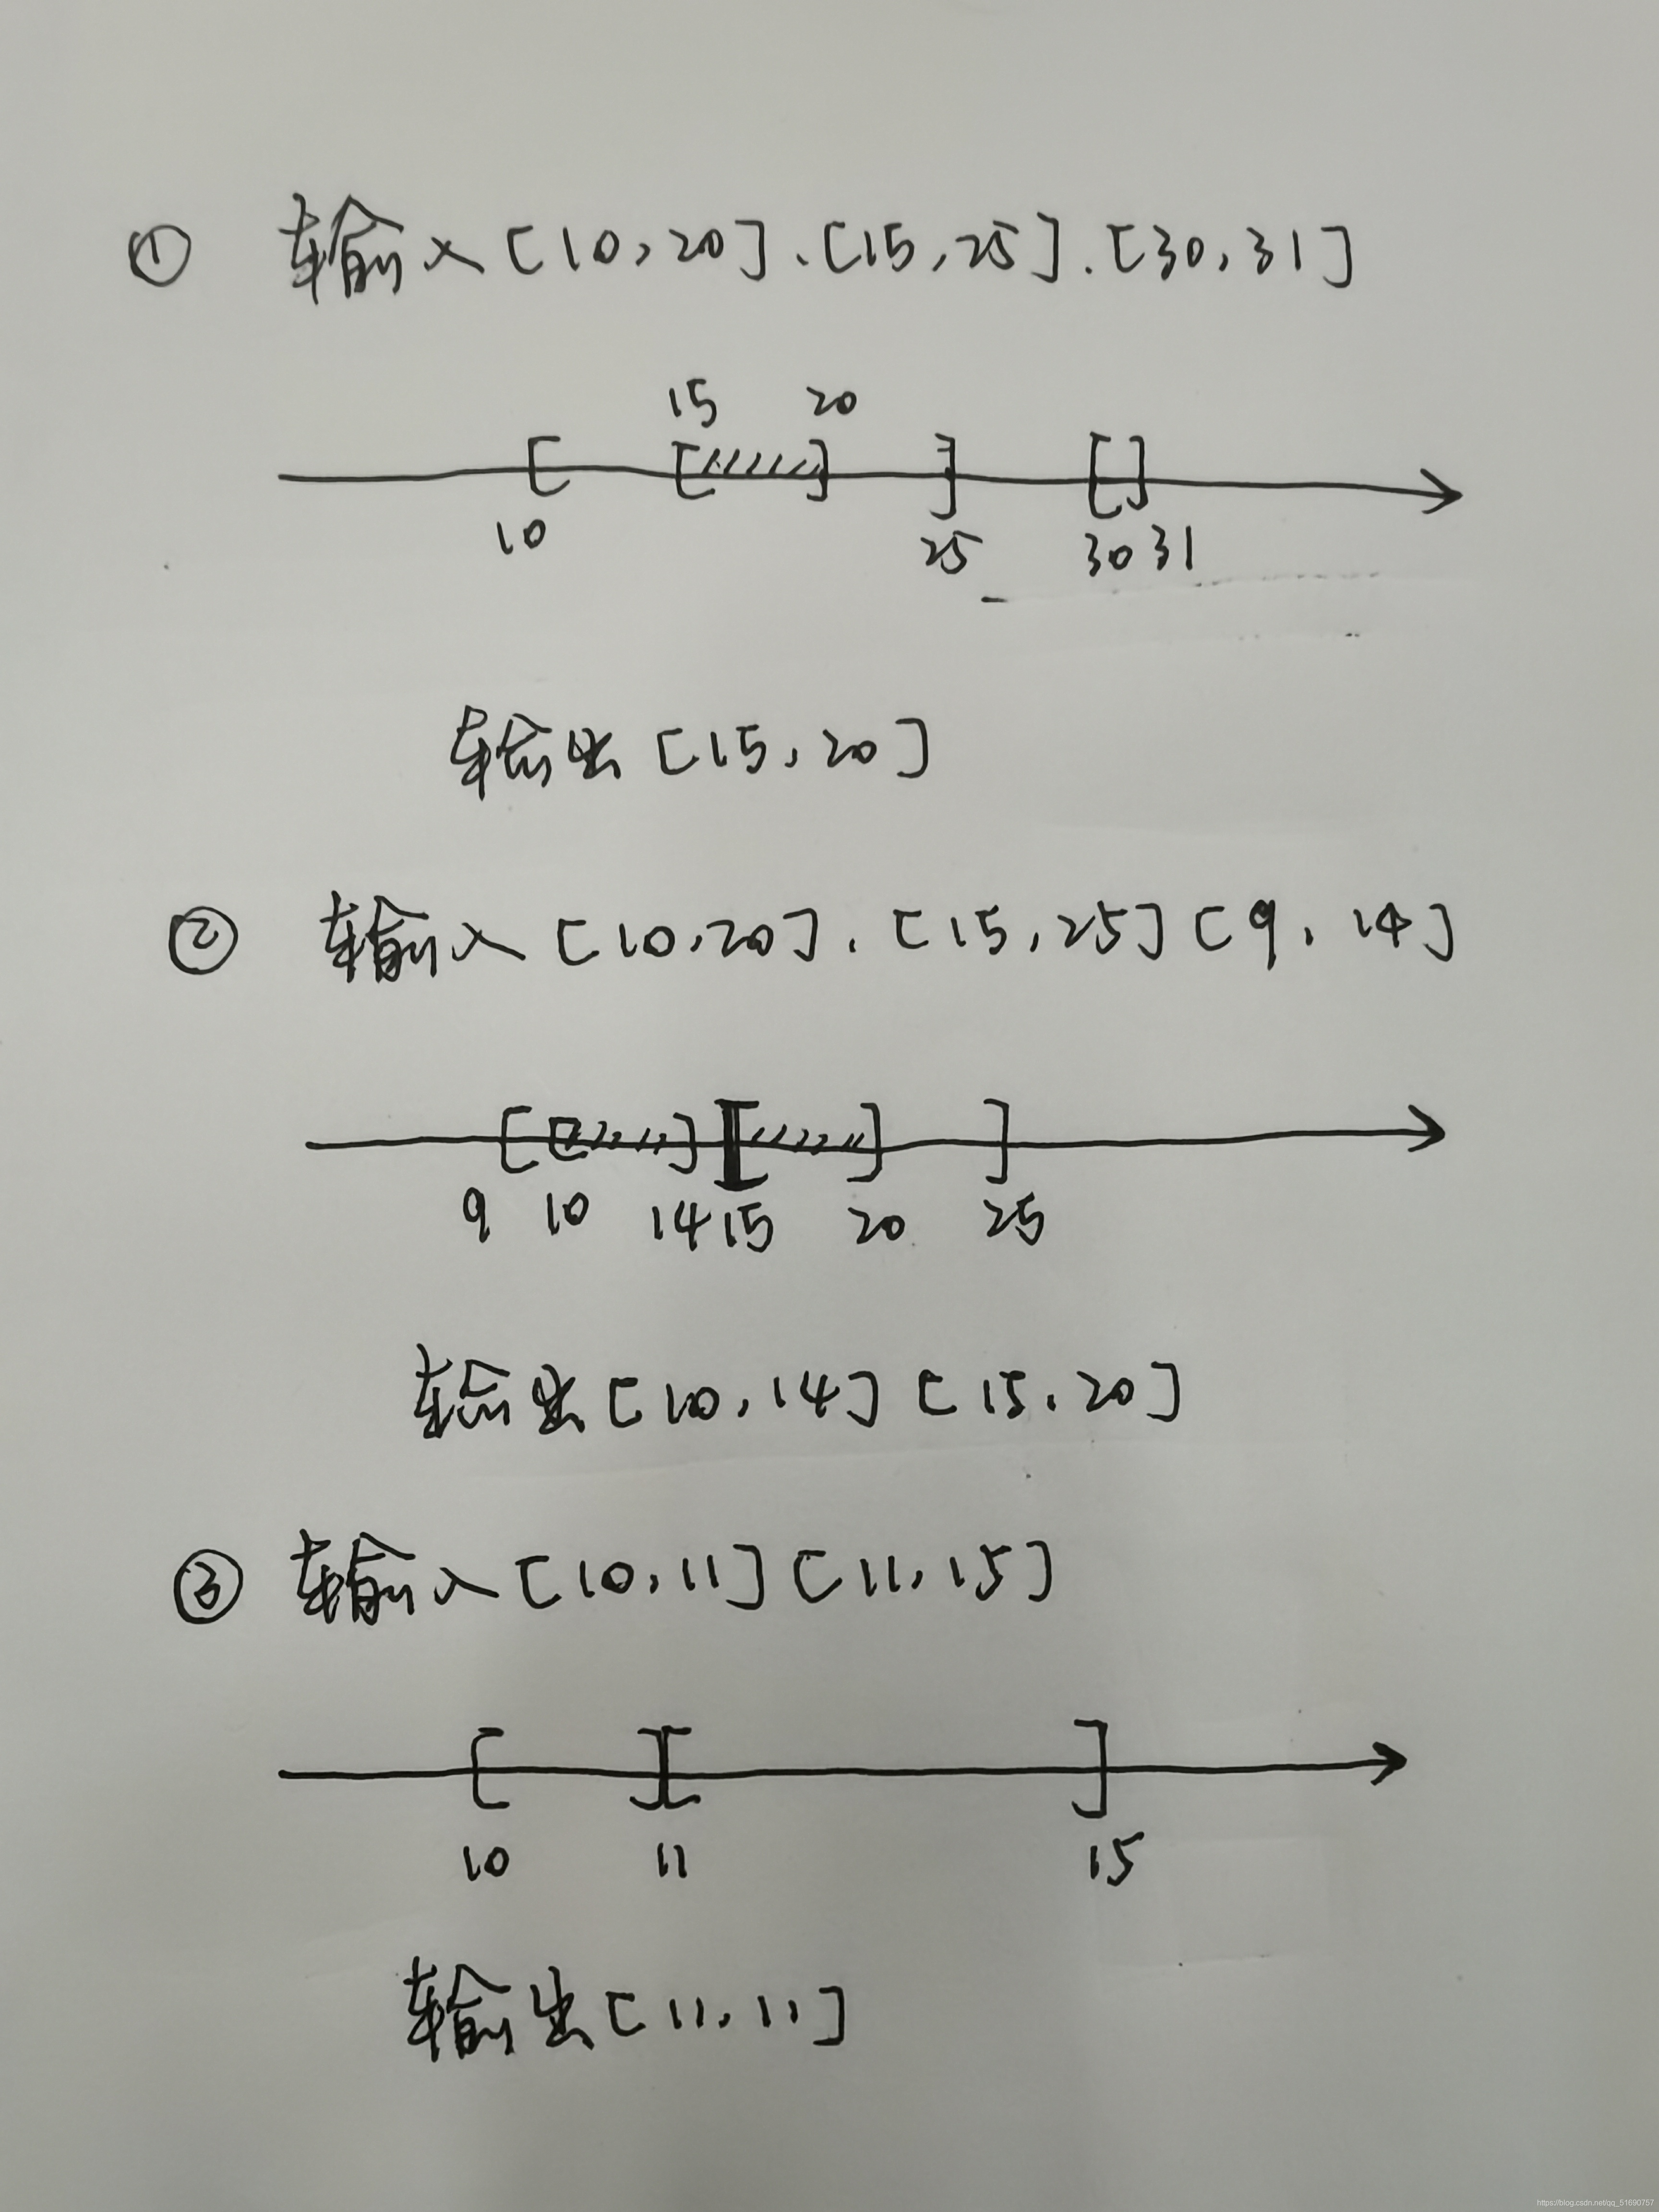 ① 输入[10,20]、[15,25]、[30,31]
15 20
10 25 30 31
输出[15,20]
② 输入[10,20]、[15,25][9,14]
9 10 14 15 20 25
输出[10,14][15,20]
③ 输入[10,11][11,15]
10 11 15
输出[11,11]
https://blog.csdn.net/qq_51690757